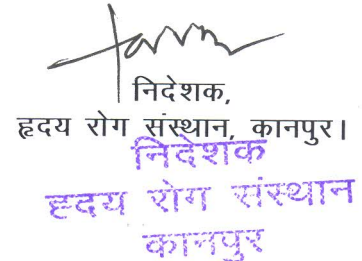 निदेशक,
हृदय रोग संस्थान, कानपुर।
निदेशक
हृदय रोग संस्थान
कानपुर